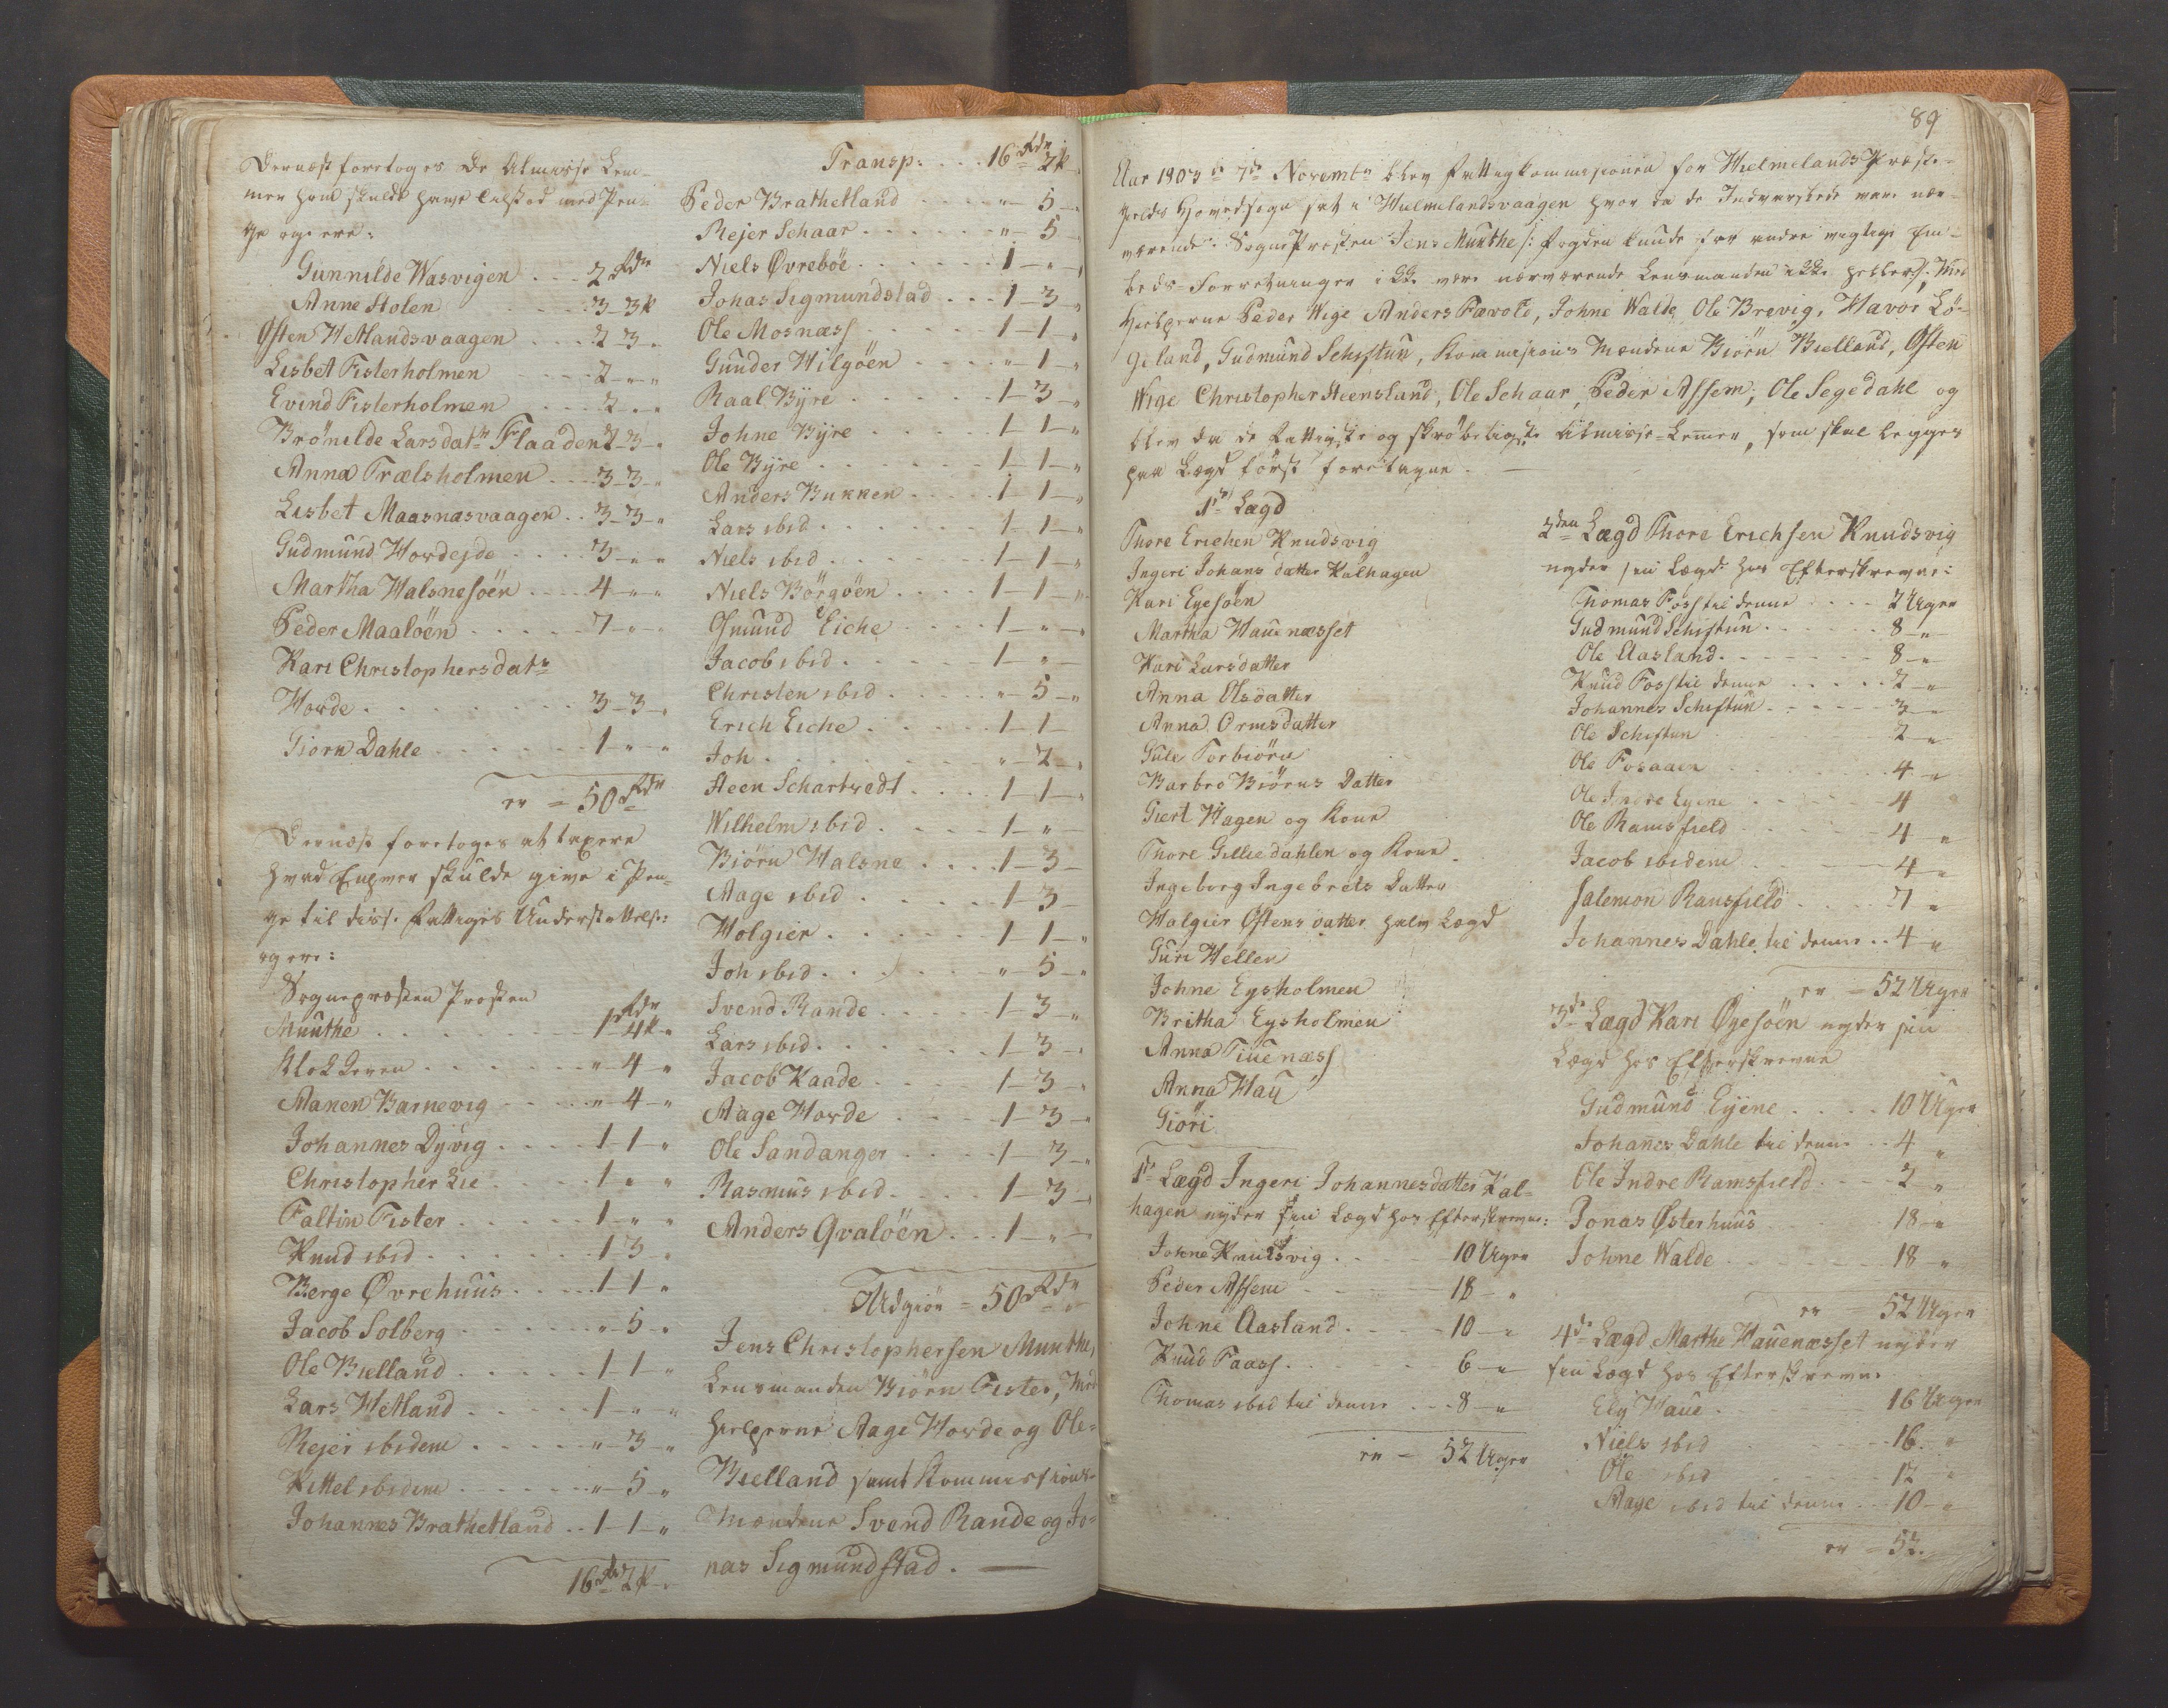 Dernæst foretoges de Almisse Lem-
mer hvad skulde have tilskud med Pen-
ge og ere:
Gunnilde Wasvigen - - - 2 Rdr
Anne Stolen - - - 3-3 ß
Østen Wetlandsvaagen - - - 2 3 „
Lisbet Fisterholmen - - - 2 - „ „
Evind Fisterholmen - - - 2 „ „
Brönilde Larsdatr Flaaden 2-3 „
Anna Trælsholmen - - - 3 3 „
Lisbet Maasnasvaagen - - 3-3 „
Gudmund Hordejde - - - 3 „ „
Martha Halsnesöen - - - 4 „ „
Peder Maalöen - - - - 7 „ „
Kari Christophersdatr
Horde - - - - - - 3-3 „
Giörn Dahle - - - - - 1 „ „
er = 50 Rdr
Dernæst foretoges at taxere
hvad Enhver skulde give i Pen-
ge til disse Fattiges Understøttelse:
og ere:
Sognepræsten Provsten
Munthe - - - - - 1 Rdr 4 ß „
Klokkeren - - - - - „ 4 „
Maren Barnevig - - - - „ 4 „
Johannes Dyvig - - - - 1 1 „
Christopher Lie - - - - 1 „ „
Faltin Fister - - - - - 1 „ „
Knud ibid - - - - - 1 3 „
Berge Øvrehuus - - - - 1 1 „
Jacob Solberg - - - - - „ 5 „
Ole Bielland - - - - - 1 1 „
Lars Wetland - - - - - 1 „ „
Rejer ibidem - - - - - „ 3 „
Kittel ibidem - - - - - „ 5 „
Johannes Brathetland - - 1-1 „
16 Rdr 2 ß „
Transp: - - - 16 Rdr 2 ß
Peder Brathetland - - - - „ 5 „
Rejer Schaar - - - - - „ 5
Niels Øvreböe - - - - - 1 „ „
Johas Sigmundstad - - - 1-3 „
Ole Mosnæss - - - - - 1-1 „
Gunder Wilgöen - - - - „ 1 „
Raal Byre - - - - - 1-3 „
Johne Byre - - - - - 1 1 „
Ole Byre - - - - - - 1-1 „
Anders Bukken - - - - 1 1 „
Lars ibid - - - - - - 1-1 „
Niels ibid - - - - - - 1-1 „
Niels Börgöen - - - - 1-1 „
Osmund Eiche - - - - 1 „ „
Jacob ibid - - - - - 1 „ „
Christen ibid - - - - - „ 5 „
Erich Eiche - - - - - 1-1
Joh - - - - - - - „ 2 „
Steen Schartvedt - - - - 1 1 „
Wilhelm ibid - - - - - 1 „
Biörn Halsne - - - - 1-3
Aage ibid - - - - - 1 3
Holgier - - - - - - 1 1 „
Joh ibid - - - - - - „ 5 „
Svend Rande - - - - - 1 3 „
Lars ibid - - - - - - 1 3 „
Jacob Kaade - - - - - 1 3 „
Aage Horde - - - - 1 3 „
Ole Sandanger - - - - 1-3 „
Rasmus ibid - - - - - 1 3 „
Anders Qvalöen - - - 1 „ „
Udgiör = 50 Rdr „
Jens Christophersen Munthe,
Lensmanden Biörn Fister, Med-
hielperne Aage Horde og Ole-
Bielland samt Kommissions-
Mændene Svend Rande og Jo-
nas Sigmundstad. —
89
Aar 1803 d 7de Novembr blev Fattigkommissionen for Hielmelands Præste-
gields Hovedsogn sat i Hielmelandsvaagen hvor da de Indvarslede vare nær-
værende: Sogne Præsten Jens Munthe /: Fogden kunde for andre vigtige Em-
beds-Forretninger ikke være nærværende Lensmanden ikke heller :/ Med
Hielperne Peder Wige Anders Færvold, Johne Walde, Ole Brevig, Havor Lö-
geland, Gudmund Schiftun, Kommissions Mændene Biörn Bielland, Østen
Wige Christopher Steensland, Ole Schaar, Peder Assem, Ole Segedahl og
blev da de Fattigste og skröbeligste Almisse-Lemmer, som skal lægges
paa Lægd först foretagne. —
1te Lægd
Thore Erichen Knudsvig
Ingeri Johans datter Kalhagen
Kari Eyesöen
Martha Hauenæsset
Kari Larsdatter
Anna Olsdatter
Anna Ormsdatter
Gule Torbiörn
Barbro Biörns Datter
Giert Hagen og Kone
Thore Gilliedahlen og Kone
Ingeborg Ingebrets Datter
Walgier Østens datter halv Lægd
Guri Hellen
Johne Eysholmen
Britha Eysholmen
Anna Tiuenæss
Anna Hau
Giöri
1te Lægd Ingeri Johannesdatter Kal-
hagen nyder sin Lægd hos Efterskrevne:
Johne Knudsvig - - - 10 Uger
Peder Assem - - - - 18 „
Johne Aasland - - - - 10 „
Knud Faass - - - - - 6 „
Thomas ibid til denne - - - 8 „
er = 52 Uger
2den Lægd Thore Erichsen Knudsvig
nyder sin Lægd hos Efterskrevne:
Thomas Foss til denne - - - 2 Uger
Gudmund Schiftun - - - - 8 „
Ole Aasland - - - - - 8 „
Knud Foss til denne - - - - 2 „
Johannes Schiftun - - - - 3 „
Ole Schiftun 2 „
Ole Fosaaen - - - - 4 „
Ole Indre Eyene - - - - 4 „
Ole Ramsfield - - - - 4 „
Jacob ibidem - - - - 4 „
Salemon Ramsfield - - - - 7 „
Johannes Dahle til denne - - 4 „
er = 52 Uger
3de Lægd Kari Øyesöen nyder sin
Lægd hos Efterskrevne
Gudmund Eyene - - - 10 Uger
Johanes Dahle til denne - - 4 „
Ole Indre Ramsfield - - - 2 „
Jonas Østerhuus - - - 18 „
Johne Walde - - - - - 18 „
er = 52 Uger
4de Lægd Marthe Hauenæsset nyder
sin Lægd hos Efterskrevne
Ely Haue - - - 16 Uger
Niels ibid - - - 16 „
Ole ibid - - - 12 „
Aage ibid til denne - - 10 „
er = 52.